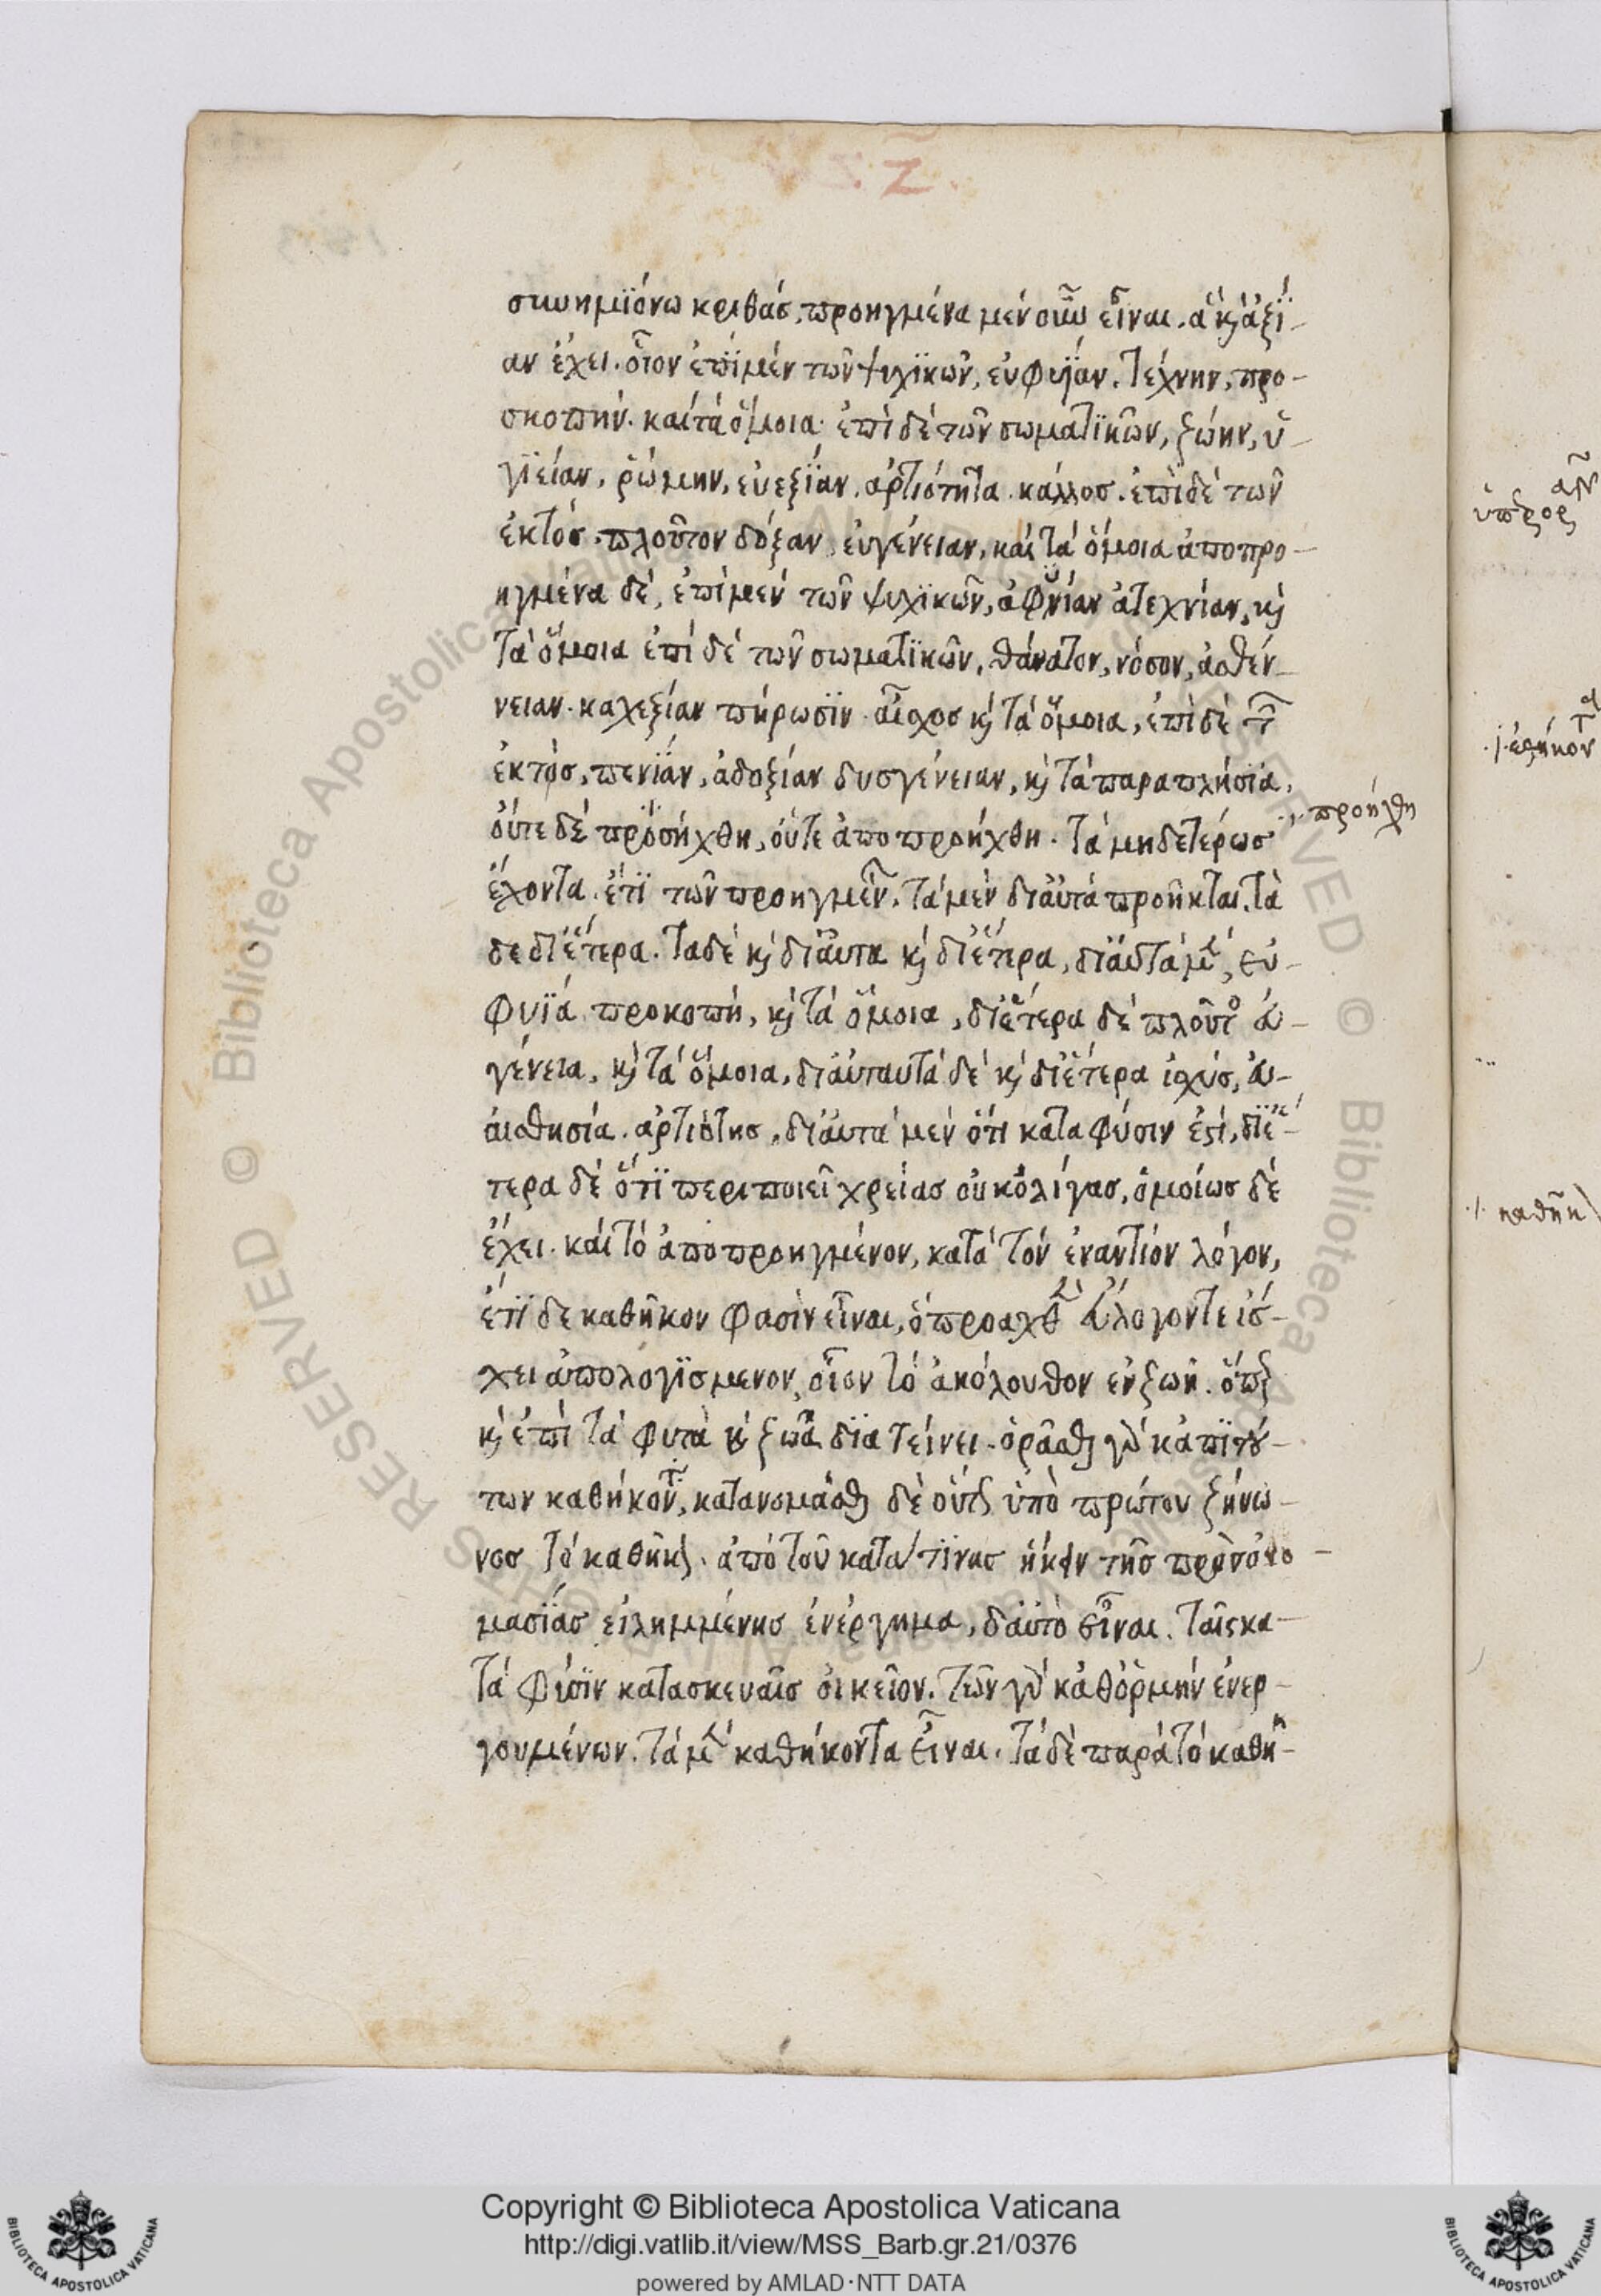 Ζ.
σὺν ἡμϊόνω κριθάσ. προηγμένα μὲν οὖν εἶναι. ἃ κ̀ ἀξΐ-
αν ἔχει. οἷον ἐπῒ μὲν τῶν ψυχϊκῶν, εὐφυΐαν. τέχνην, προ-
σκοπήν. καὶ τὰ ὅμοια. ἐπὶ δὲ τῶν σωματϊκῶν, ζώην, ὑ-
γϊείαν, ῥώμην, εὐεξΐαν. ἀρτιότητα. κάλλοσ. ἐπῒ δὲ τῶν
ἐκτόσ. πλοῦτον δόξαν, εὐγένειαν, καὶ τὰ ὅμοια ἀποπρο-
ηγμένα δὲ, ἐπὶ μὲν τῶν ψυχϊκῶν, ἀφυΐαν ἀτεχνίαν, κ̀
τὰ ὅμοια ἐπὶ δὲ τῶν σωματϊκῶν, θάνατον, νόσον, ἀσθέν-
νειαν. καχεξίαν πήρωσϊν. αἶσχοσ κ̀ τὰ ὅμοια, ἐπὶ δὲ τῶν
ἐκτόσ, πενΐαν, ἀδοξίαν δυσγένειαν, κ̀ τὰ παραπλήσϊα,
οὔτε δὲ προσήχθη, οὔτε ἀποπροήχθη. τὰ μηδετέρωσ
προήχθη
ἔχοντα. ἔτϊ τῶν προηγμένων. τὰ μὲν δϊ αὐτὰ προῆκται. τὰ
δὲ δϊ ἕτερα. τὰ δὲ κ̀ δϊ αὐτα κ̀ δϊ ἕτερα, δϊ αὐτὰ μὲν, εὐ-
φυϊά προκοπή, κ̀ τὰ ὅμοια, δϊ ἕτερα δὲ πλοῦτος εὐ-
γένεια, κ̀ τὰ ὅμοια, δϊ αὐταυτὰ δὲ κ̀ δϊ ἕτερα ἰσχύσ, εὐ-
αισθησία. ἀρτιότησ, δϊ αὐτὰ μὲν ὅτι κατα φύσιν ἐστί, δϊ ἕ-
τερα δὲ ὅτϊ περιποιεῖ χρείασ οὐκ ὀλίγασ, ὁμοίωσ δὲ
ἔχει. καὶ τὸ ἀποπροηγμένον, κατὰ τὸν ἐναντίον λόγον,
ἔτϊ δὲ καθῆκον φασὶν εἶναι, ὃ προαχθὲν εὔλογον τε ἰσ-
χει ἀπολογϊσμενον, οἷον τὸ ἀκόλουθον ἐν ζωῆ. ὅπερ
κ̀ ἐπὶ τὰ φυτὰ κ̀ ζῶα δϊατείνει. ὁρᾶσθαι γὰρ κἀπὶ τού-
των καθήκοντα, κατανομάσθαι δὲ οὕτως ὑπὸ πρώτου ζήνω-
νοσ τὸ καθῆκον. ἀπὸ τοῦ κατα τϊνασ ἥκειν τῆσ προσονο-
μασϊάσ εἰλημμένησ ἐνέργημα, δ αὐτὸ εἶναι. ταῖς κα-
τὰ φύσϊν κατασκευαῖσ οἰκεῖον. τῶν γὰρ καθ ὁρμὴν ἐνερ-
γουμένων. τὰ μὲν καθήκοντα εἶναι. τὰ δὲ παρὰ τὸ καθῆ-
Copyright © Biblioteca Apostolica Vaticana
http://digi.vatlib.it/view/MSS_Barb.gr.21/0376
powered by AMLAD·NTT DATA